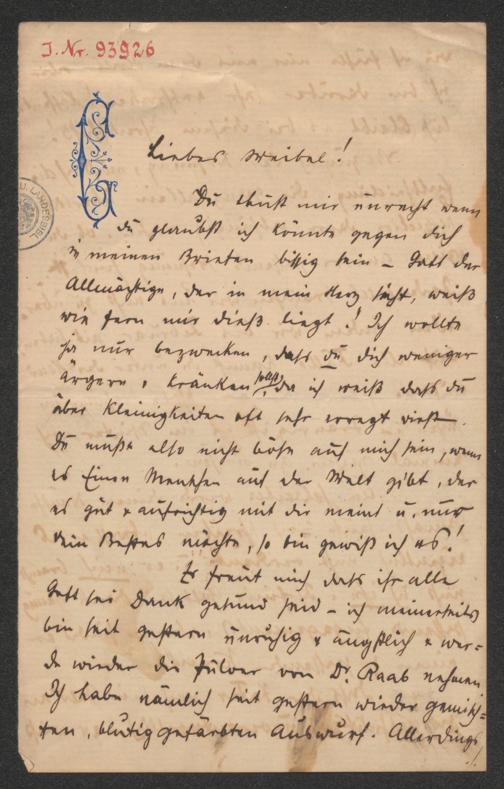 J. Nr. 93926
U. LANDESBI
Liebes Weibel!
Du thust mir unrecht wenn
du glaubst ich könnte gegen dich
in meinen Briefen bissig sein – Gott der
Allmächtige, der in mein Herz sieht, weiß
wie fern mir dieß liegt! Ich wollte
ja nur bezwecken, dass du dich weniger
ärgern & kränken sollst, da ich weiß dass du
über Kleinigkeiten oft sehr erregt wirst.
Du mußt also nicht böse auf mich sein, wenn
es Einen Menschen auf der Welt gibt, der
es gut & aufrichtig mit dir meint u. nur
dein Bestes möchte, so bin gewiß ich es!
Es freut mich dass ihr alle
Gott sei Dank gesund seid – ich meinerseits
bin seit gestern unruhig & ängstlich & wer=
de wieder die Pulver von Dr. Raab nehmen
Ich habe nämlich seit gestern wieder gemisch=
ten, blutig gefärbten Auswurf. Allerdings